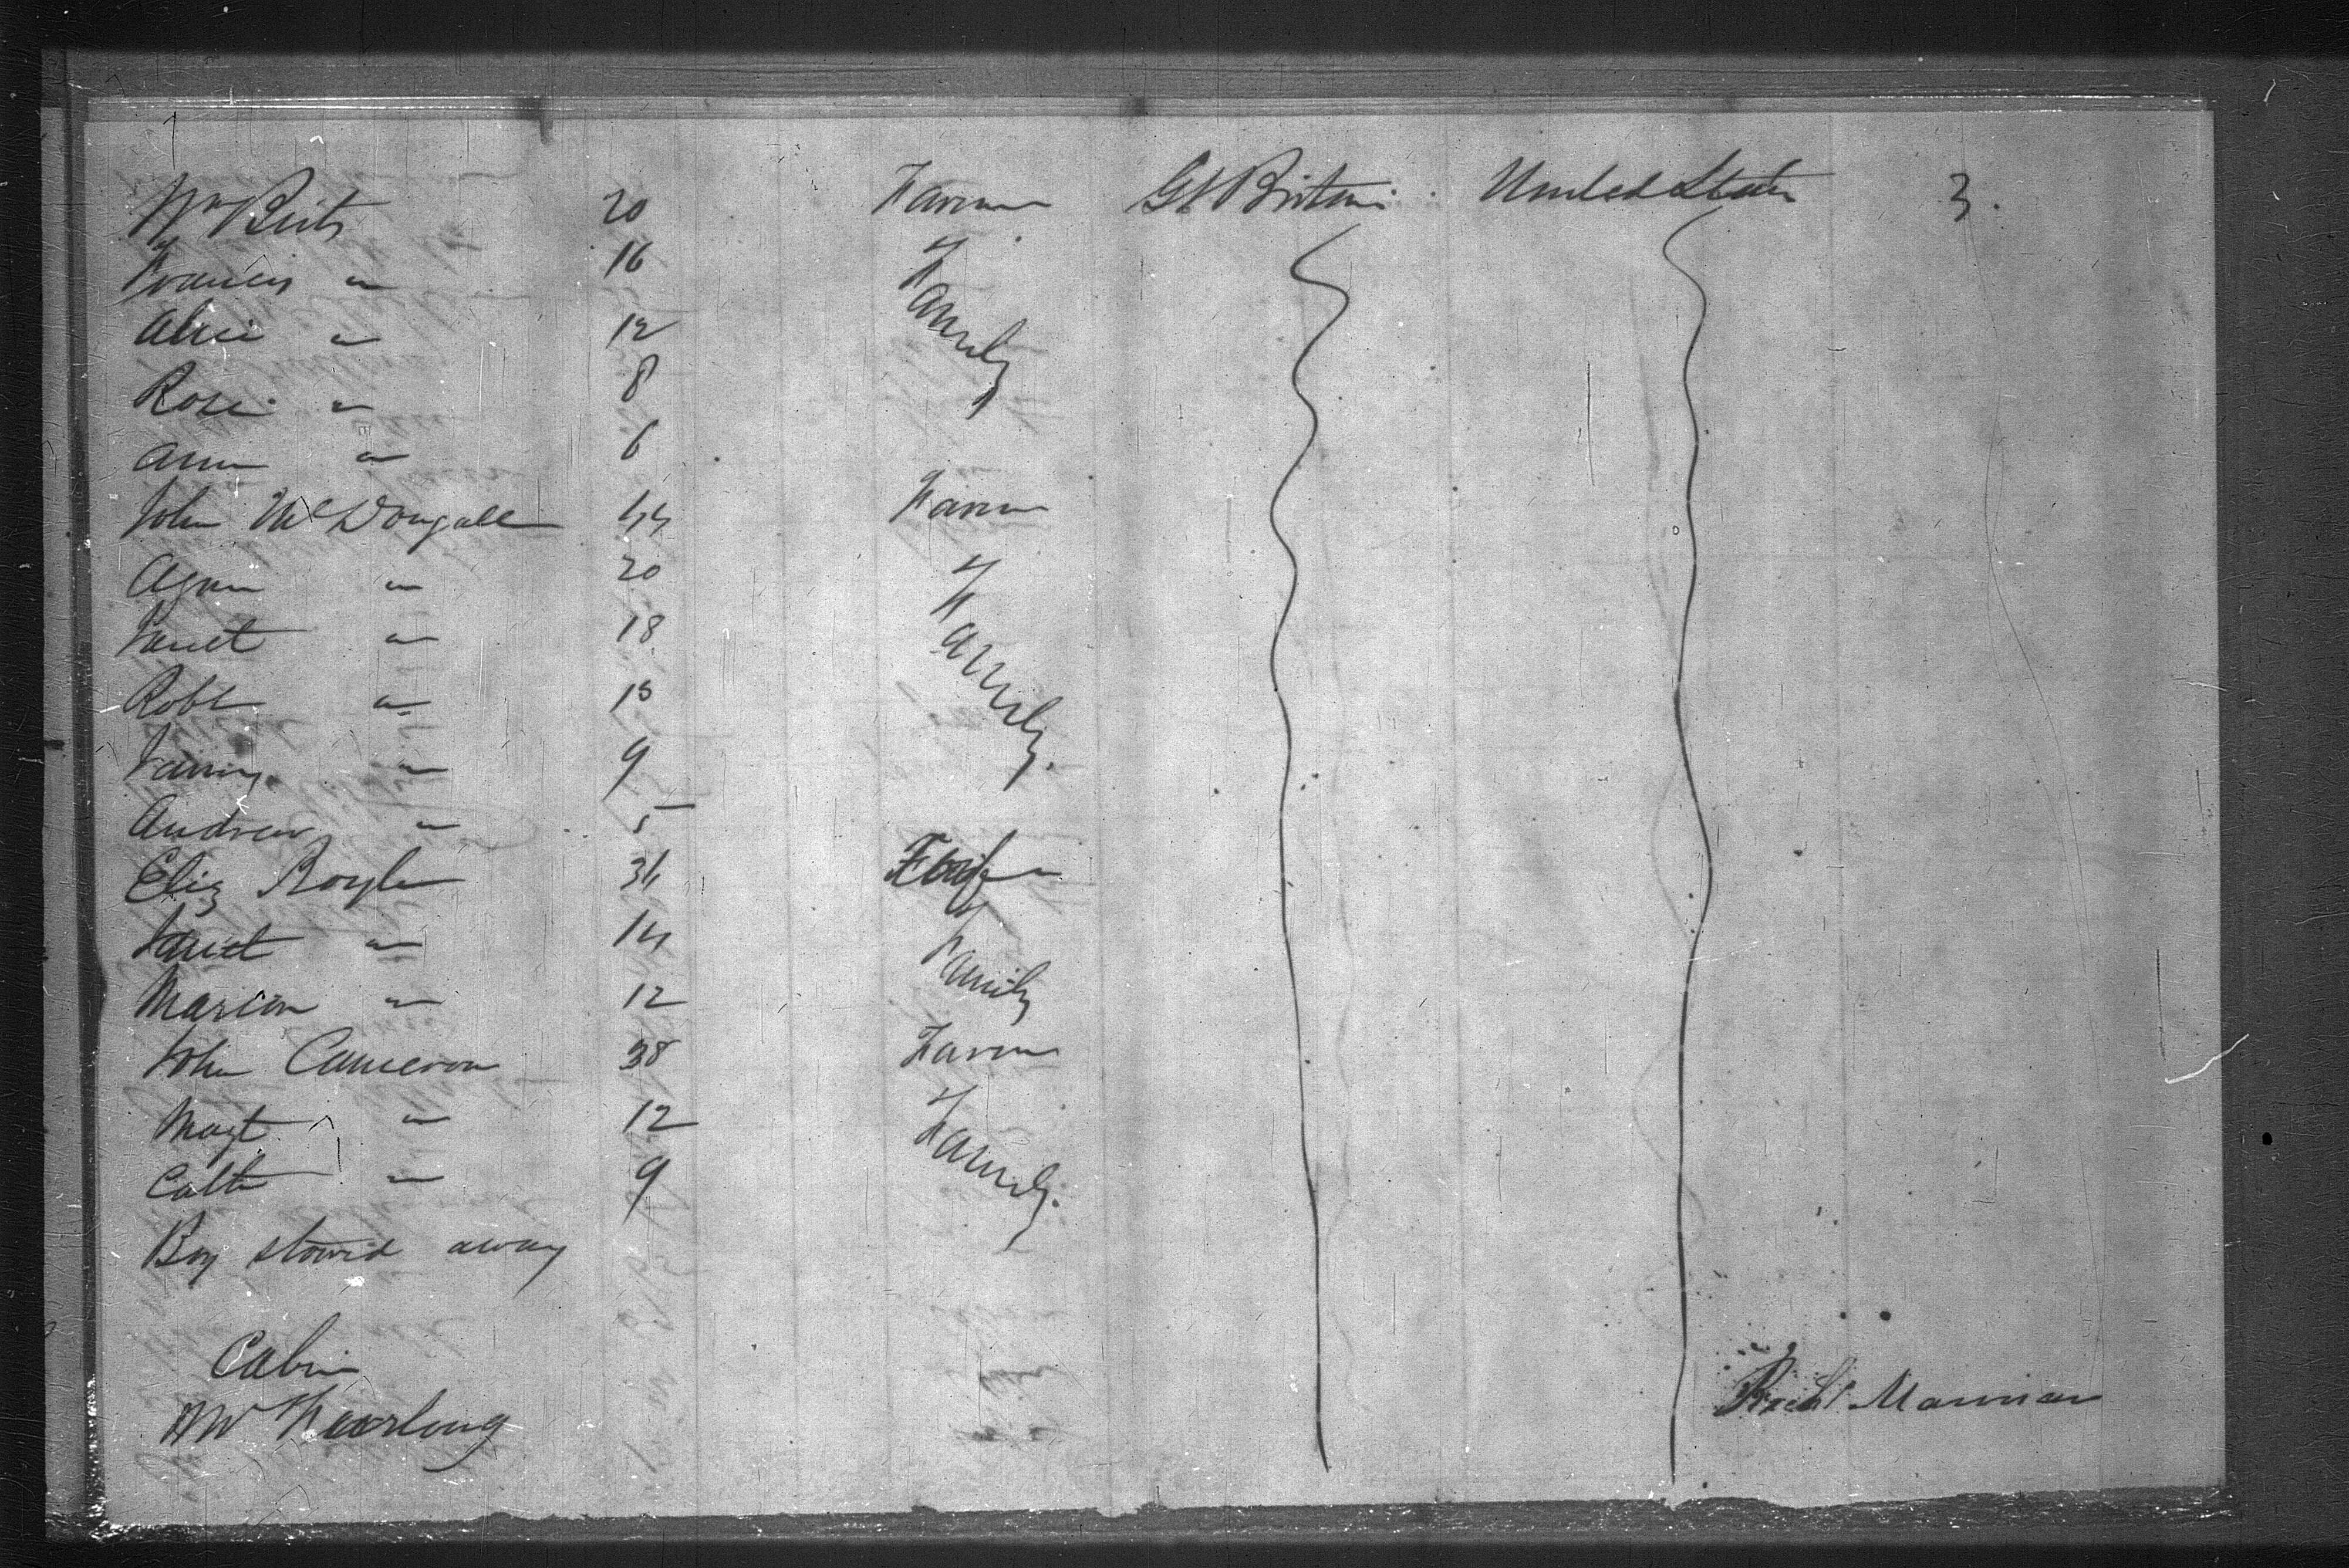 Wm Beits 20 Farmer Gt Britain United States 3.
Francis " 16 Family
Alice " 12
Rose " 8
Ann " 6
John McDougall 44 Farmer
Agnes " 20 Family.
Janet " 18
Robt " 10
Fanny "  9
Andrew " 5
Eliz Boyle 34
Janet " 14 Family
Marion " 12
John Cameron 38 Farmer
Magt " 12 Family.
Cath "  9
Boy stowed away
Cabin